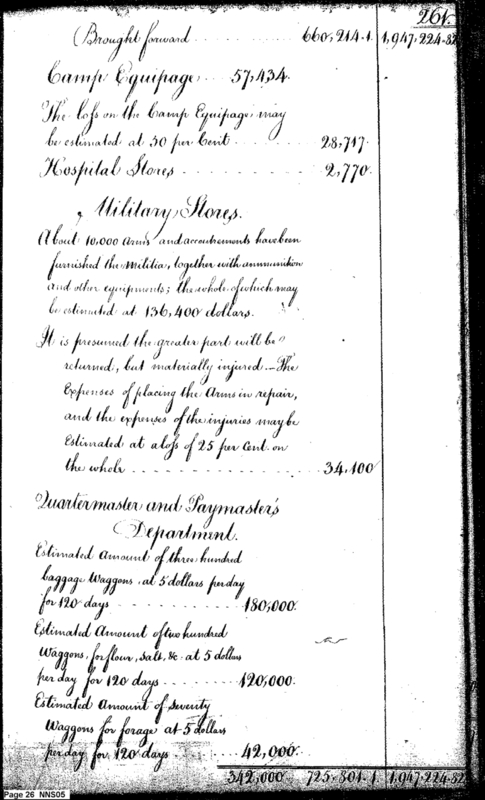 261.
Brought forward 660,214.1 1,947,224.82
Camp Equipage 57,434.
The loss on the Camp Equipage may
be estimated at 50 per Cent 28,717.
Hospital Stores 2,770.
Military Stores.
About 10,000 Arms and accoutrements have been
furnished the Militia, together with ammunition
and other equipments; the whole of which may
be estimated at 136,400 dollars.
It is presumed the greater part will be
returned, but materially injured. The
Expenses of placing the Arms in repair,
and the expenses of the injuries may be
Estimated at a loss of 25 per Cent. on
the whole 34,100
Quartermaster and Paymaster's
Department.
Estimated Amount of three hundred
baggage Waggons, at 5 dollars per day
for 120 days 180,000.
Estimated Amount of two hundred
Waggons, for flour, Salt, &c. at 5 dollars
per day for 120 days 120,000.
Estimated Amount of Seventy
Waggons for forage at 5 dollars
per day for 120 days 42,000.
342,000 725,801.1 1,947,224.82
Page 26 NNS05